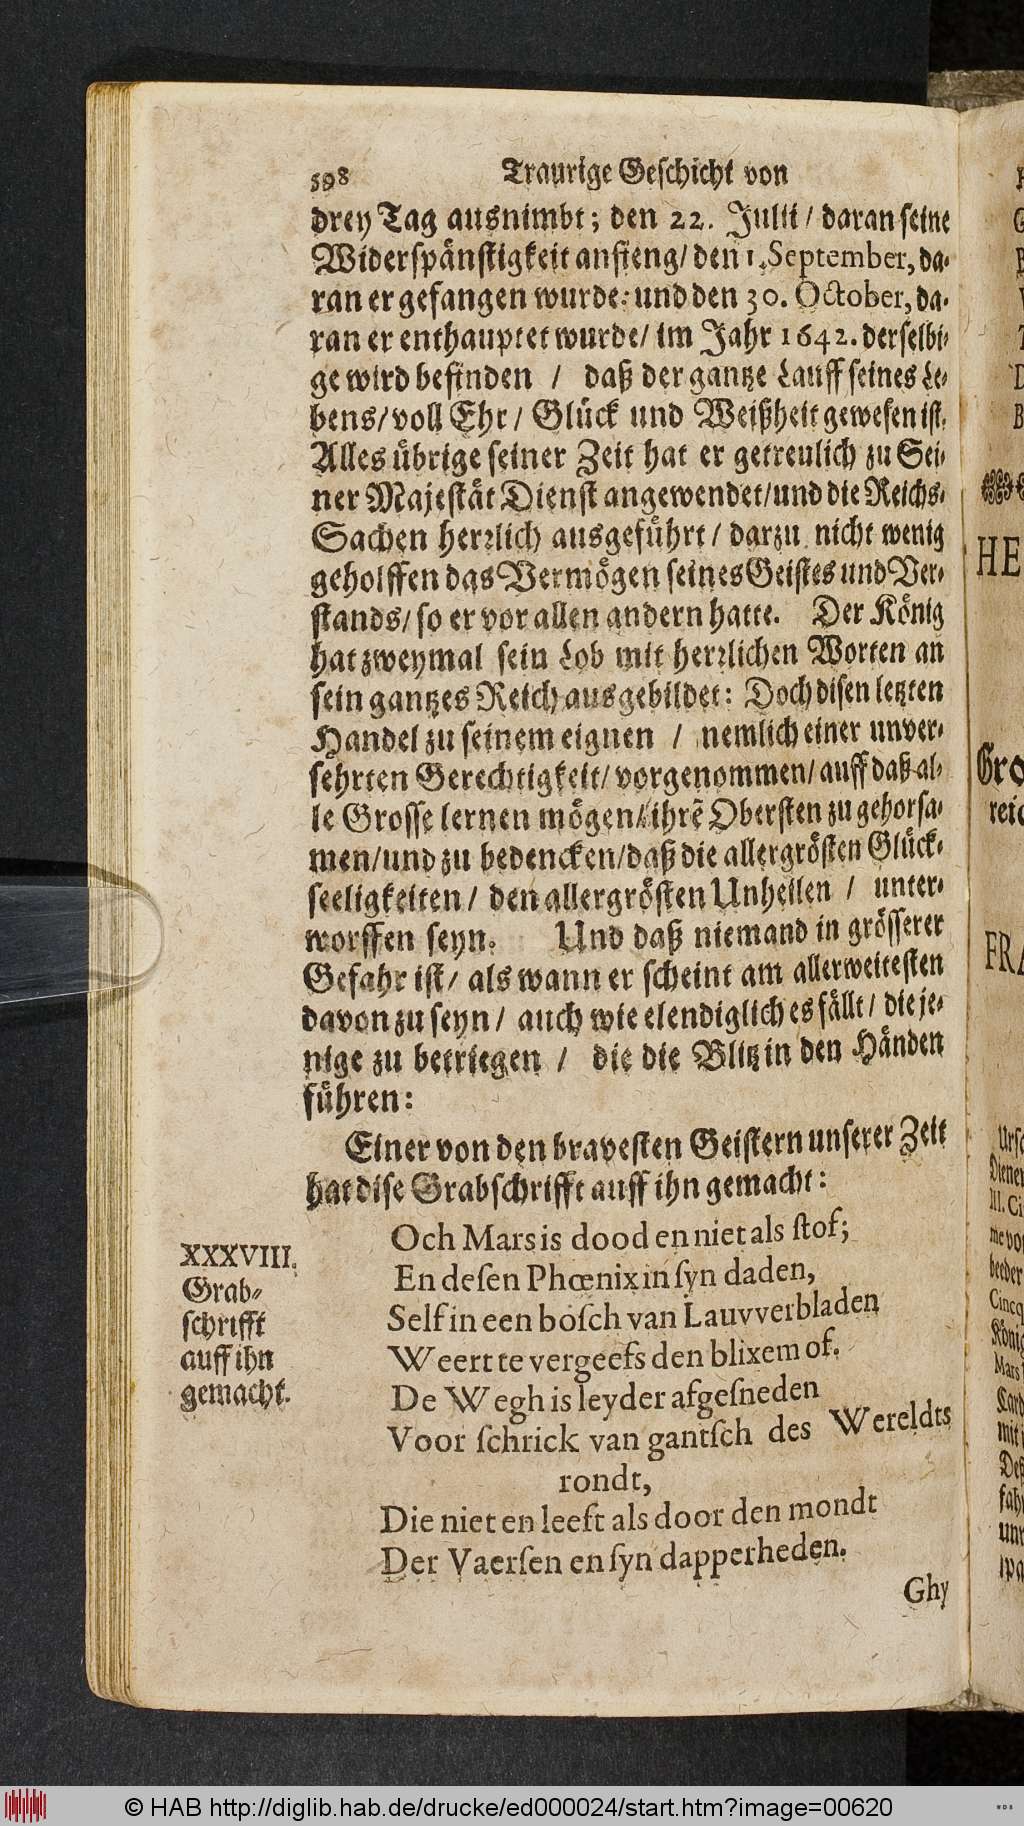 598 Traurige Geschicht von
drey Tag ausnimbt; den 22. Julii / daran seine
Widerspänstigkeit anfieng/ den 1. September, da-
ran er gefangen wurde: und den 30. October, da-
ran er enthauptet wurde/ im Jahr 1642. derselbi-
ge wird befinden / daß der gantze Lauff seines Le-
bens/ voll Ehr / Glück und Weißheit gewesen ist.
Alles übrige seiner Zeit hat er getreulich zu Sei-
ner Majestät Dienst angewendet/ und die Reichs-
Sachen herrlich ausgeführt / darzu nicht wenig
geholffen das Vermögen seines Geistes und Ver-
stands/ so er vor allen andern hatte. Der König
hat zweymal sein Lob mit herrlichen Worten an
sein gantzes Reich ausgebildet: Doch disen letzten
Handel zu seinem eignen / nemlich einer unver-
sehrten Gerechtigkeit/ vorgenommen/ auff daß al-
le Grosse lernen mögen/ ihrẽ Obersten zu gehorsa-
men/ und zu bedencken/ daß die allergrösten Glück-
seeligkeiten / den allergrösten Unheilen / unter-
worffen seyn. Und daß niemand in grösserer
Gefahr ist/ als wann er scheint am allerweitesten
davon zu seyn / auch wie elendiglich es fällt / die je-
nige zu betriegen / die die Blitz in den Händen
führen:
Einer von den bravesten Geistern unserer Zeit
hat dise Grabschrifft auff ihn gemacht:
XXXVIII.
Grab-
schrifft
auff ihn
gemacht.
Och Mars is dood en niet als ſtof;
En deſen Phœnix in ſyn daden,
Self in een boſch van Lauvverbladen
Weert te vergeefs den blixem of.
De Wegh is leyder afgeſneden
Voor ſchrick van gantſch des Wereldts
rondt,
Die niet en leeft als door den mondt
Der Vaerſen en ſyn dapperheden.
Ghy
HE
Gro
reic
FRA
© HAB http://diglib.hab.de/drucke/ed000024/start.htm?image=00620